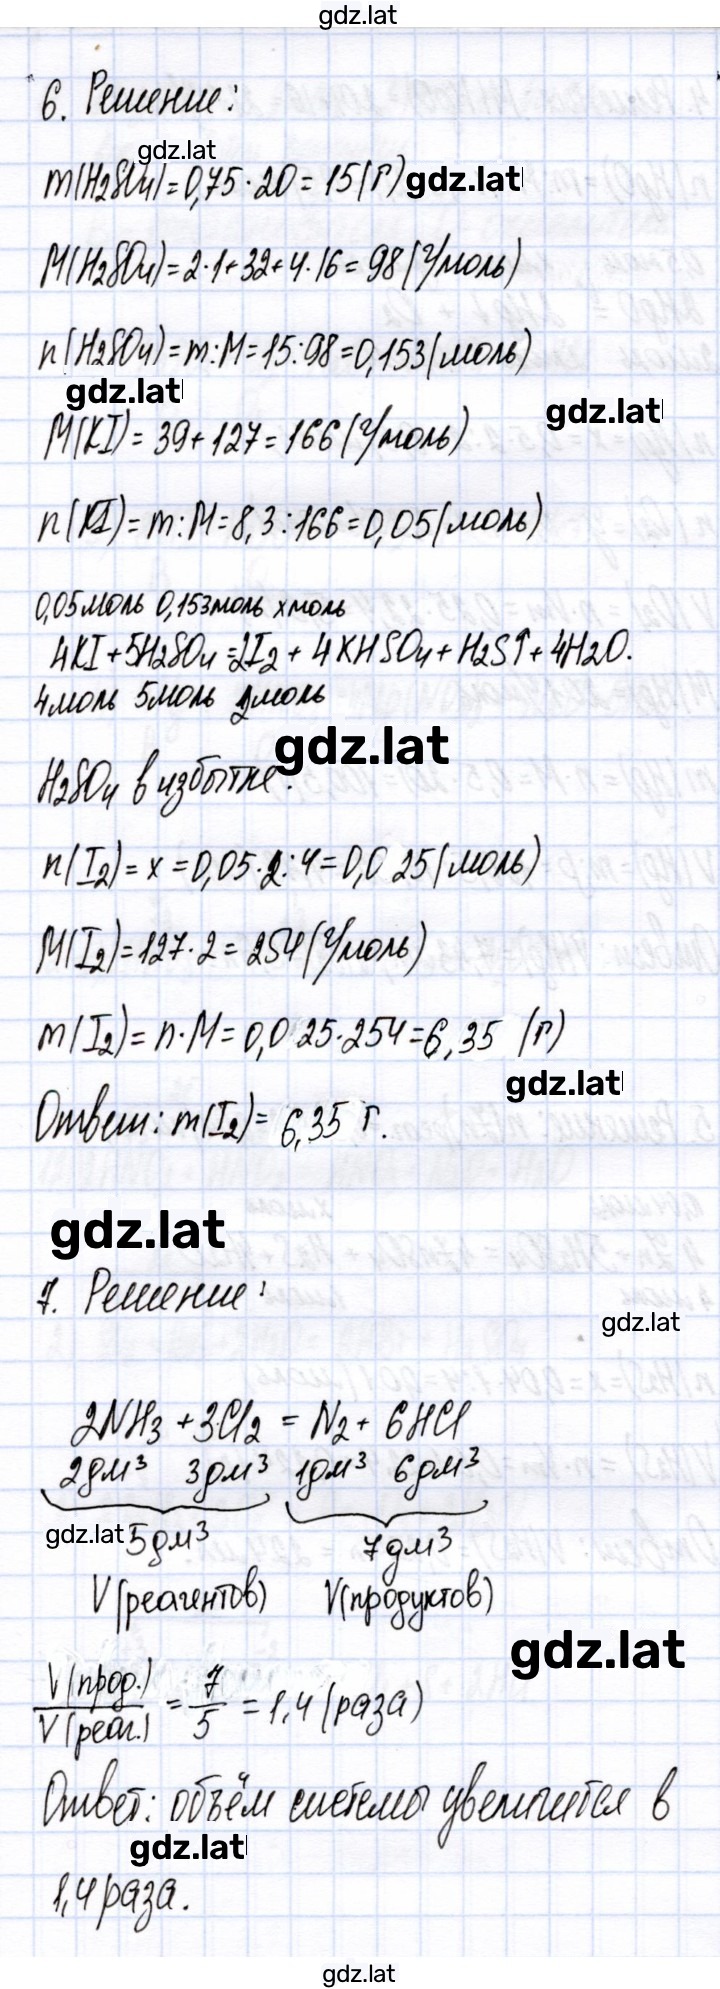 gdz.lat
6. Решение:
gdz.lat
m(H2SO4)=0,75·20=15(г) gdz.lat
M(H2SO4)=2·1+32+4·16=98(г/моль)
n(H2SO4)=m:M=15:98=0,153(моль)
gdz.lat
gdz.lat
M(KI)=39+127=166(г/моль)
n(KI)=m:M=8,3:166=0,05(моль)
0,05моль 0,153моль xмоль
4KI+5H2SO4=2I2+4KHSO4+H2S↑+4H2O.
4моль 5моль 2моль
gdz.lat
H2SO4 в избытке.
n(I2)=x=0,05·2:4=0,025(моль)
M(I2)=127·2=254(г/моль)
m(I2)=n·M=0,025·254=6,35 (г)
gdz.lat
Ответ: m(I2)=6,35 г.
gdz.lat
7. Решение:
gdz.lat
2NH3+3Cl2=N2+6HCl
2дм³ 3дм³ 1дм³ 6дм³
gdz.lat 5дм³ 7дм³
V(реагентов) V(продуктов)
gdz.lat
V(прод.)/V(реаг.)=7/5=1,4(раза)
Ответ: объём системы увеличится в
gdz.lat
1,4 раза.
gdz.lat